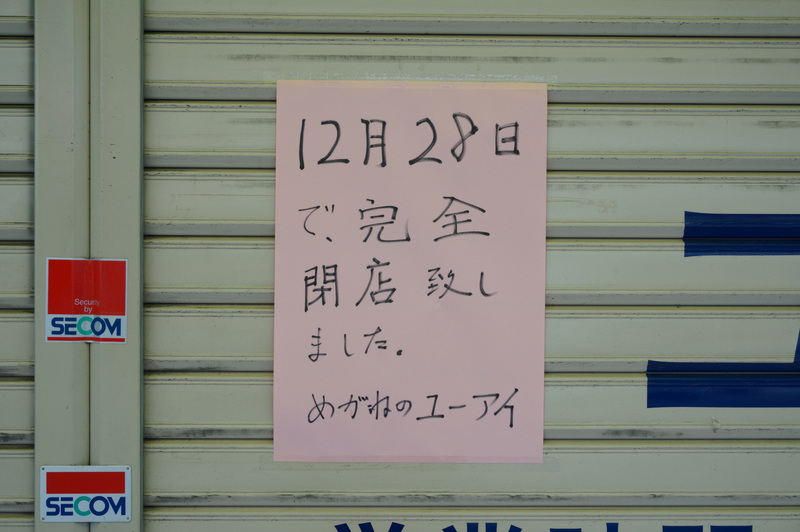 12月28日
で、完全
閉店致し
ました。
めがねのユーアイ
Security
by
SECOM
SECOM